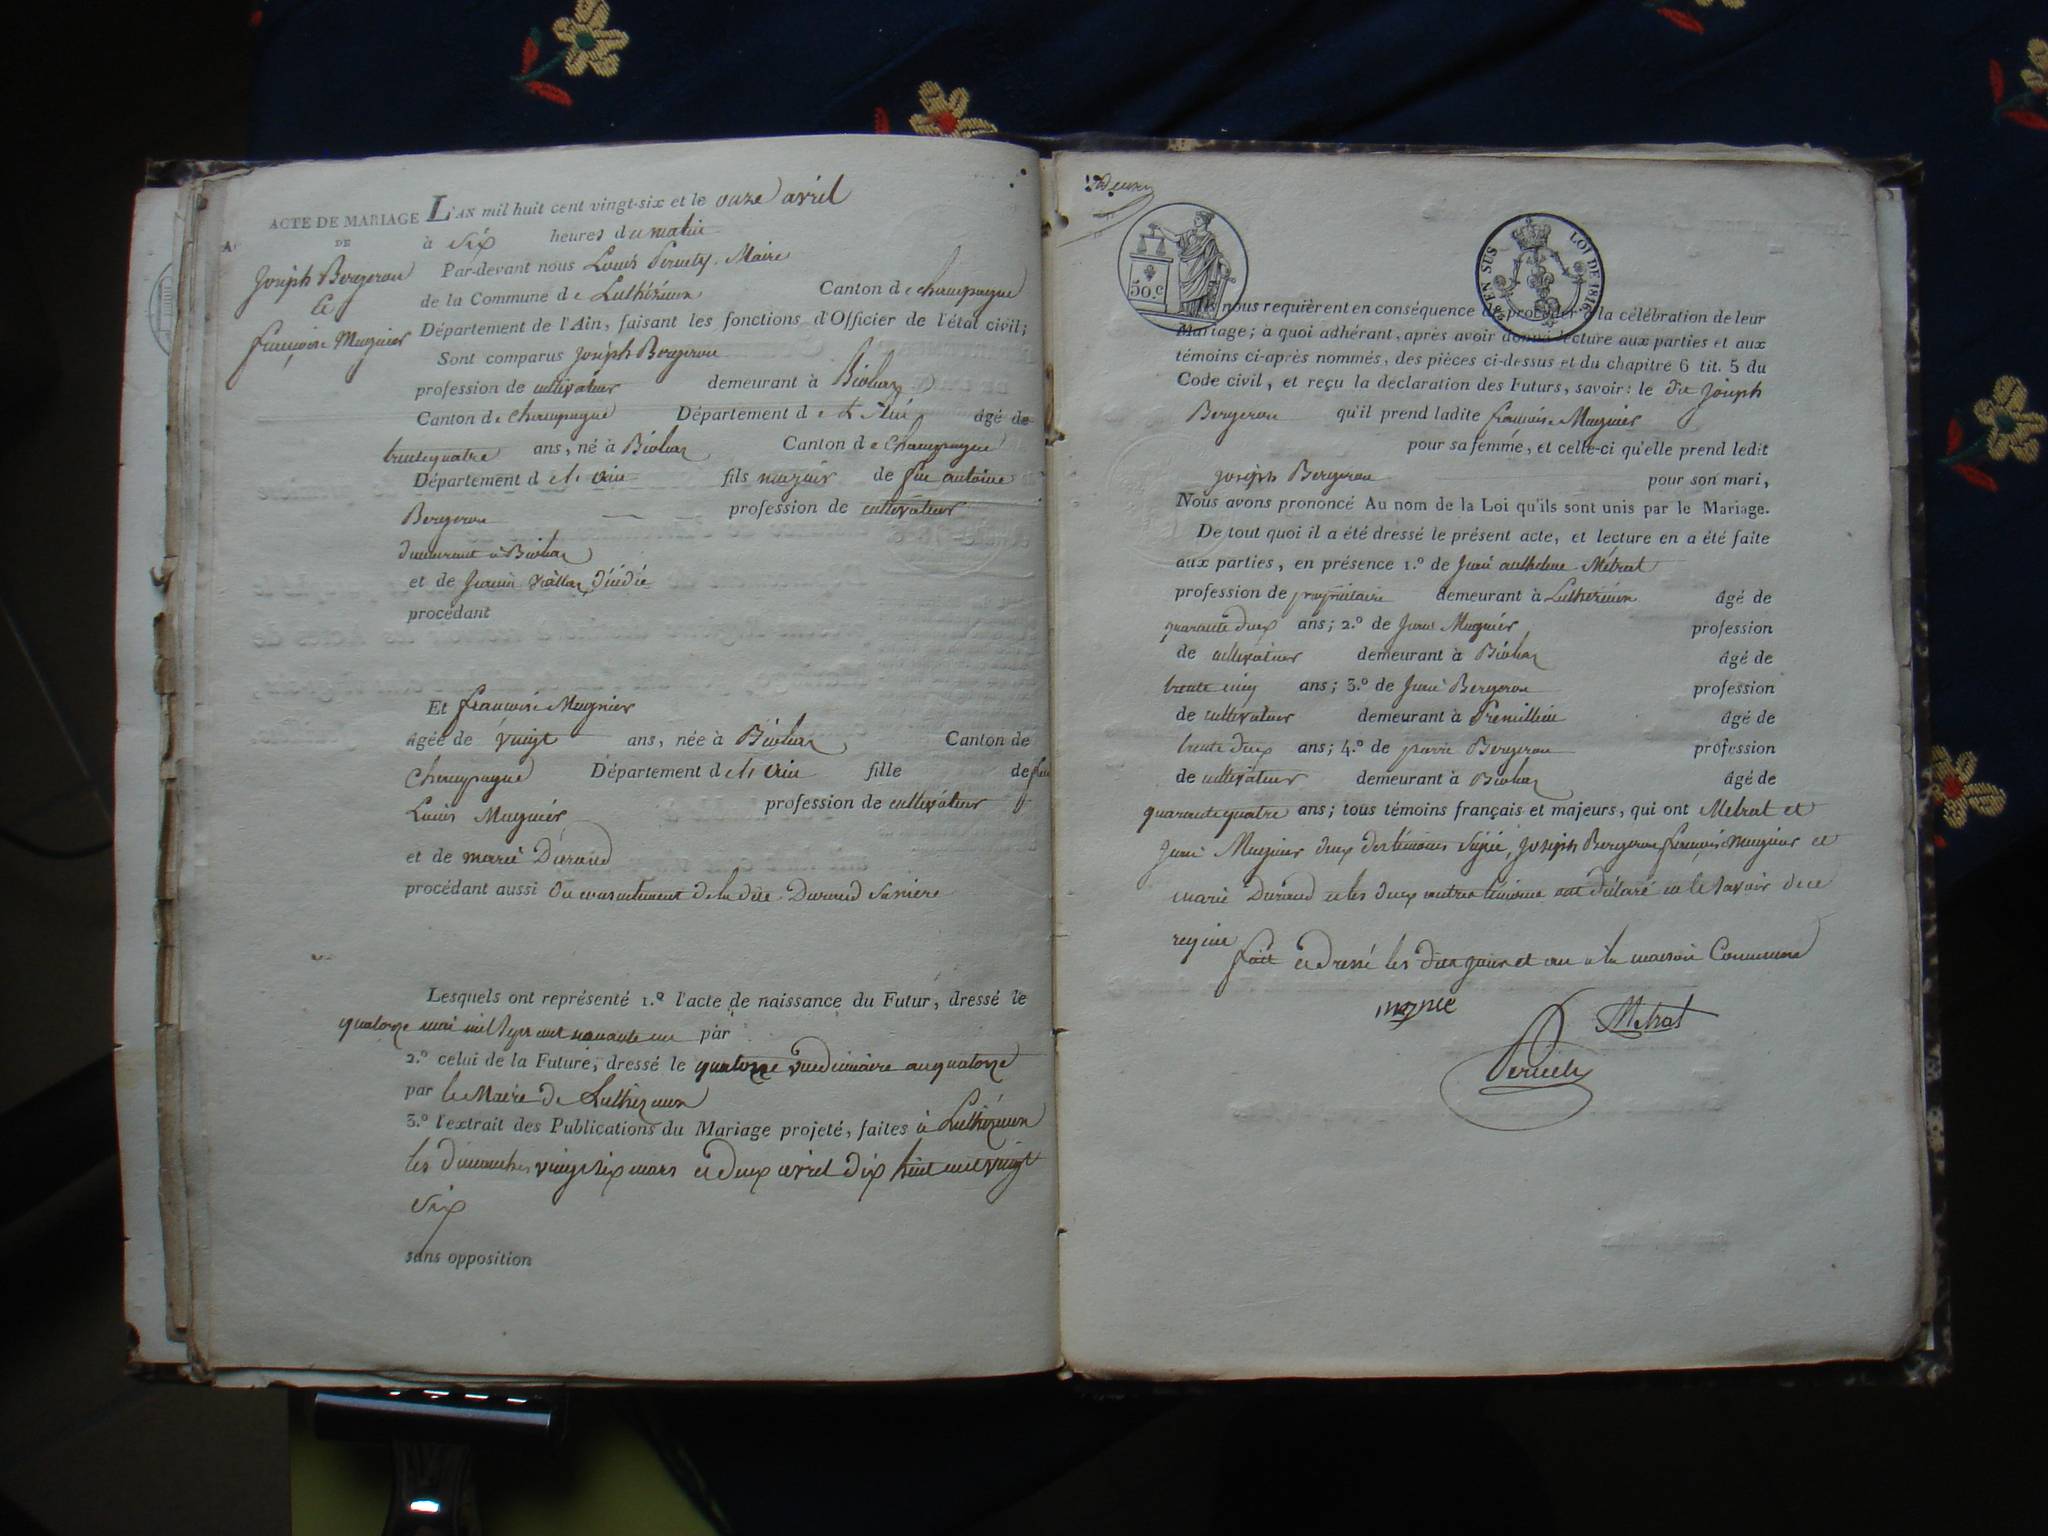 ACTE DE MARIAGE
DE
Joseph Bergeron
et
françoise Mugnier
L'AN mil huit cent vingt-six et le onze avril
à six heures du matin
Par-devant nous Louis Maire
de la Commune de Luthézieu Canton de champagne
Département de l'Ain, faisant les fonctions d'Officier de l'état civil;
Sont comparus joseph Bergeron
profession de cultivateur demeurant à Bioléaz
Canton de champagne Département de L'Ain âgé de
trente quatre ans, né à Bioléaz Canton de champagne
Département de l'ain fils majeur de feu antoine
Bergeron profession de cultivateur
demeurant à Bioléaz
et de décédée
procédant
Et françoise Mugnier
âgée de vingt ans, née à Bioléaz Canton de
champagne Département de l'ain fille de feu
Louis Mugnier profession de cultivateur
et de marie Durand
procédant aussi du consentement de la dite Durand sa mère
Lesquels ont représenté 1.º l'acte de naissance du Futur, dressé le
quatorze mai mil sept cent nonante un par
2.º celui de la Future, dressé le quatorze vendemiaire an quatorze
par le Maire de Luthézieu
3.º l'extrait des Publications du Mariage projeté, faites à Luthézieu
les dimanches vingt six mars et deux avril dix huit cent vingt
six
sans opposition
50.c
EN SUS LOI DE 1816
Ils nous requièrent en conséquence de procéder à la célébration de leur
Mariage; à quoi adhérant, après avoir donné lecture aux parties et aux
témoins ci-après nommés, des pièces ci-dessus et du chapitre 6 tit. 5 du
Code civil, et reçu la déclaration des Futurs, savoir: le dit joseph
Bergeron qu'il prend ladite françoise Mugnier
pour sa femme, et celle-ci qu'elle prend ledit
joseph Bergeron pour son mari,
Nous avons prononcé Au nom de la Loi qu'ils sont unis par le Mariage.
De tout quoi il a été dressé le présent acte, et lecture en a été faite
aux parties, en présence 1.º de anthelme Métrat
profession de propriétaire demeurant à Luthézieu âgé de
quarante deux ans; 2.º de Mugnier profession
de cultivateur demeurant à Bioléaz âgé de
trente cinq ans; 3.º de Bergeron profession
de cultivateur demeurant à Prémillieu âgé de
trente deux ans; 4.º de pierre Bergeron profession
de cultivateur demeurant à Bioléaz âgé de
quarante quatre ans; tous témoins français et majeurs, qui ont Métrat et
Mugnier deux des témoins signé, joseph Bergeron françoise Mugnier et
marie Durand et les deux autres témoins ont déclaré ne le savoir de ce
requis
fait et dressé les dits jour et an à la maison Commune
Métrat